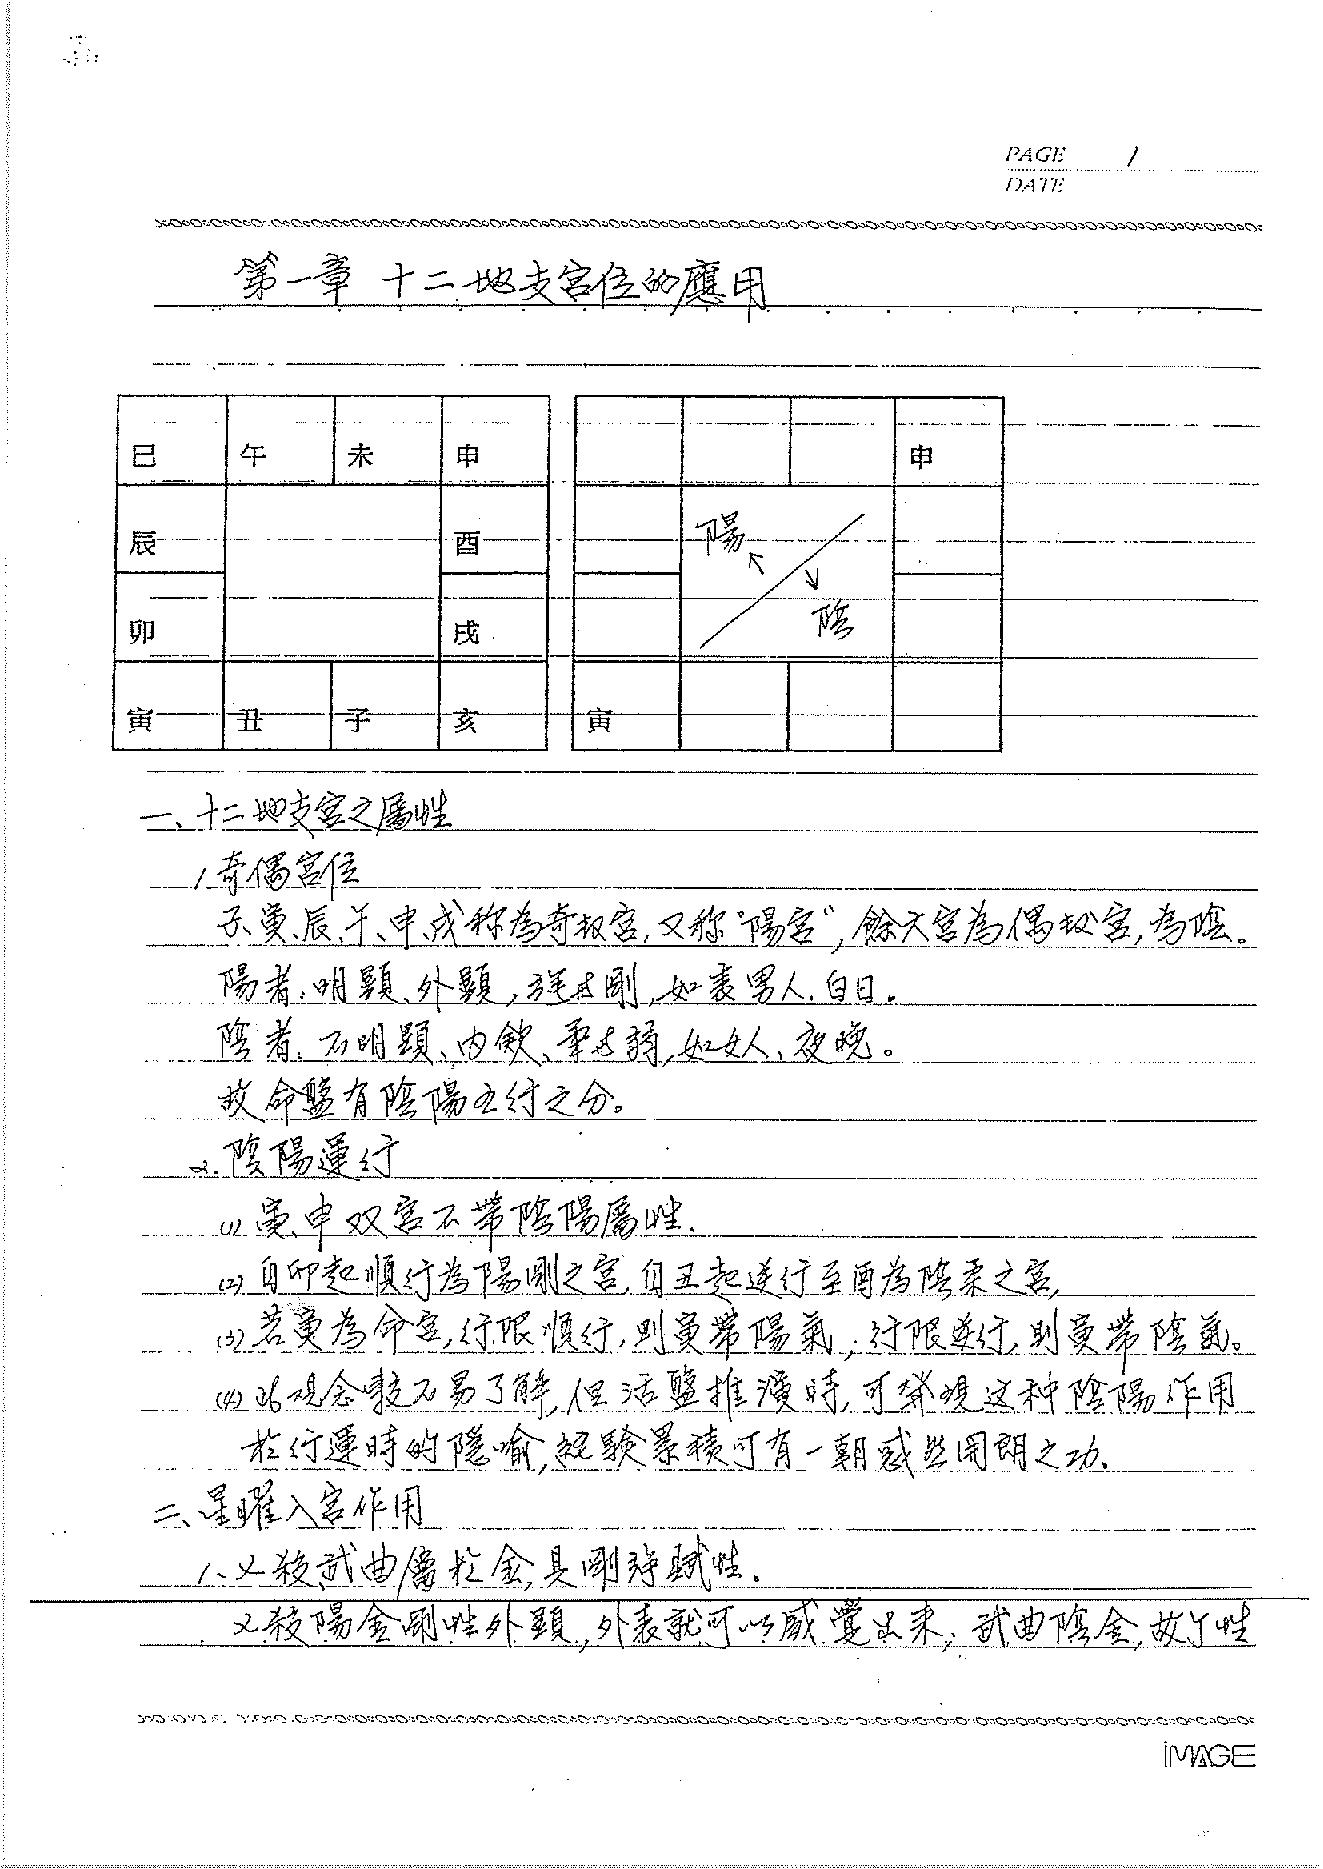 PAGE 1
DATE
第一章 十二地支宮位的應用
巳 午 未 申 申
辰 酉 陽
卯 戌 陰
寅 丑 子 亥 寅
一、十二地支宮之屬性
1.奇偶宮位
子、寅、辰、午、申、戌称為奇数宮,又称"陽宮",餘六宮為偶数宮,為陰。
陽者:明顯、外顯,強与剛,如表男人、白日。
陰者:不明顯、內歛、柔与弱,如女人、夜晚。
故命盤有陰陽五行之分。
2.陰陽運行
(1)寅、申双宮不帶陰陽屬性.
(2)自卯起順行為陽剛之宮,自丑起逆行至酉為陰柔之宮,
(3)若寅為命宮,行限順行,則寅帶陽氣;行限逆行,則寅帶陰氣。
(4)此观念較不易了解,但活盤推演時,可發現这种陰陽作用
於行運時的隱喻,經驗累積可有一朝感些開朗之功.
二、星曜入宮作用
1.乂殺、武曲屬於金,具剛強賦性.
乂殺陽金剛性外顯,外表就可以感覺出来;武曲陰金,故丫性
iMAGE